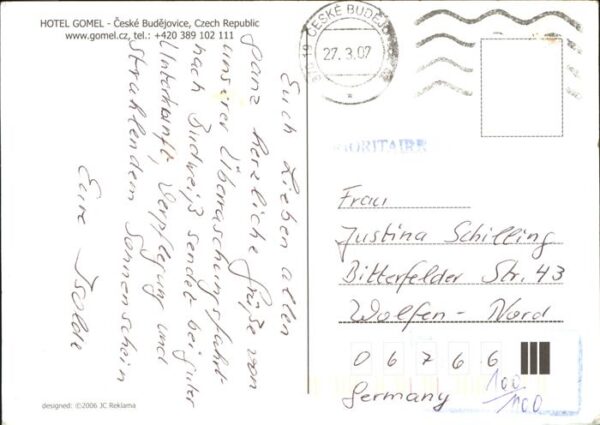 HOTEL GOMEL - České Budějovice, Czech Republic
www.gomel.cz, tel.: +420 389 102 111
Euch Lieben allen
ganz herzliche Grüße von
unserer Überraschungsfahrt
nach Budweiß sendet bei guter
Unterkunft, Verpflegung und
strahlendem Sonnenschein
Eure Isolde
designed: ©2006 JC Reklama
ČESKÉ BUDĚJO
27.3.07
PRIORITAIRE
Frau
Justina Schilling
Bitterfelder Str. 43
Wolfen - Nord
06766
Germany
100